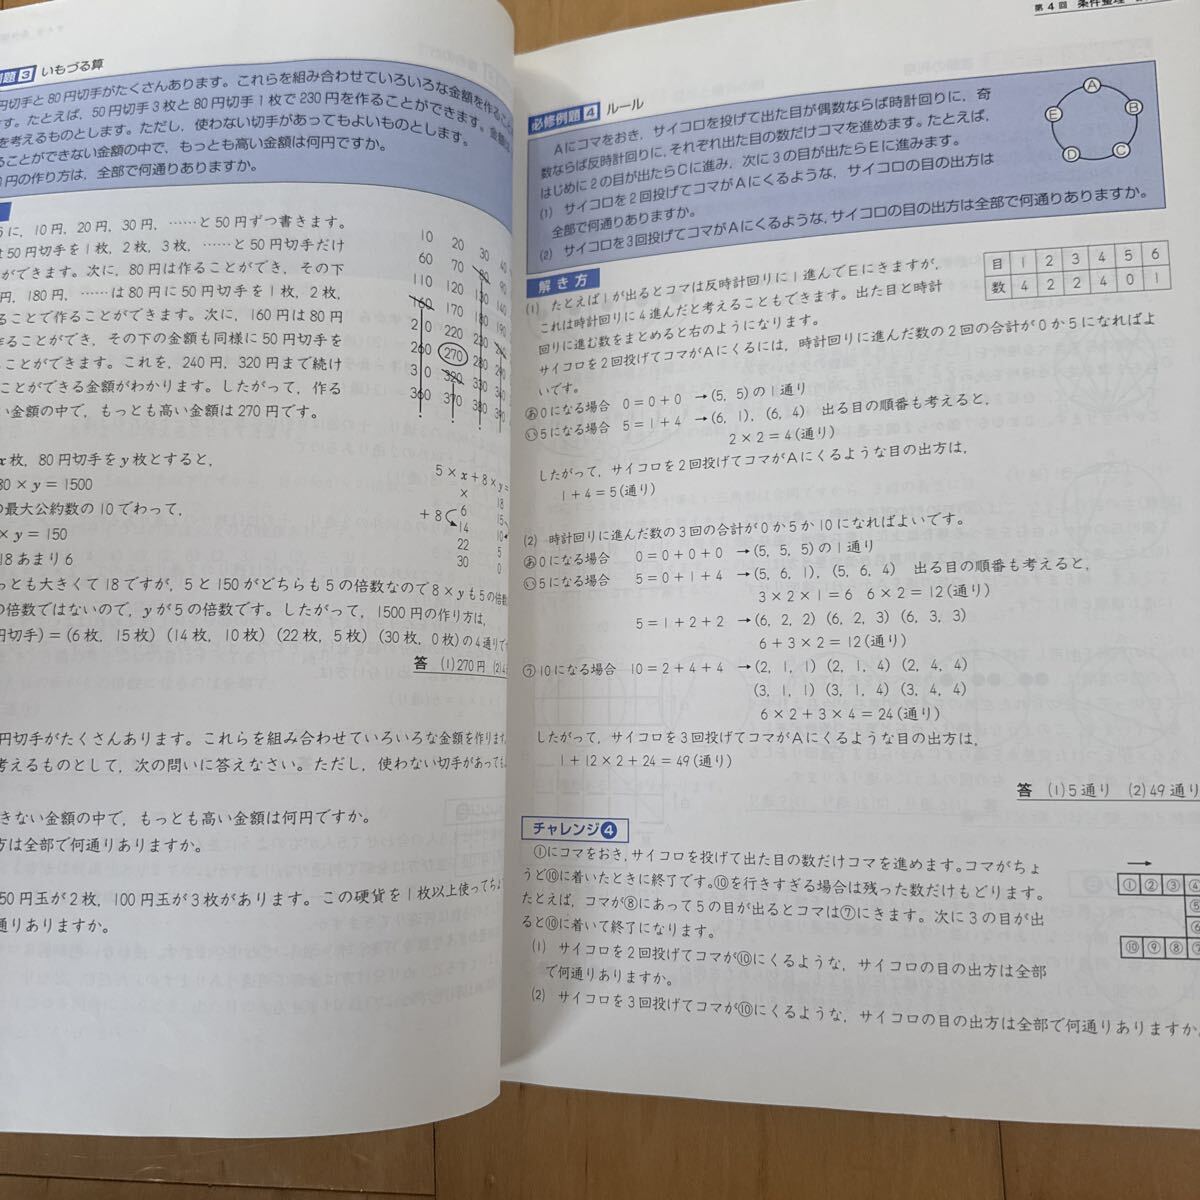 例題3 いもづる算
円切手と80円切手がたくさんあります。これらを組み合わせていろいろな金額を作ること
す。たとえば、50円切手3枚と80円切手1枚で230円を作ることができます。金額は、
を考えるものとします。ただし、使わない切手があってもよいものとします。
ることができない金額の中で、もっとも高い金額は何円ですか。
円の作り方は、全部で何通りありますか。
に、10円、20円、30円、……と50円ずつ書きます。
は50円切手を1枚、2枚、3枚、……と50円切手だけ
ができます。次に、80円は作ることができ、その下
円、180円、……は80円に50円切手を1枚、2枚、
ることで作ることができます。次に、160円は80円
作ることができ、その下の金額も同様に50円切手を
ることができます。これを、240円、320円まで続け
ことができる金額がわかります。したがって、作る
い金額の中で、もっとも高い金額は270円です。
10 20 30 40
60 70 80 90
110 120 130 140
160 170 180 190
210 220 230 240
260 270 280 290
310 320 330 340
360 370 380 390
x枚、80円切手をy枚とすると、
80×y=1500
の最大公約数の10でわって、
×y=150
18あまり6
っとも大きくて18ですが、5と150がどちらも5の倍数なので8×yも5の倍数
の倍数ではないので、yが5の倍数です。したがって、1500円の作り方は、
円切手)=(6枚、15枚) (14枚、10枚) (22枚、5枚) (30枚、0枚)の4通りで
5×x+8×y=
×
+8
6 15
14 10
22 5
30 0
18
答 (1)270円 (2)4
円切手がたくさんあります。これらを組み合わせていろいろな金額を作ります
考えるものとして、次の問いに答えなさい。ただし、使わない切手があっても
きない金額の中で、もっとも高い金額は何円ですか。
方は全部で何通りありますか。
50円玉が2枚、100円玉が3枚があります。この硬貨を1枚以上使ってちょ
通りありますか。
第4回 条件整理
必修例題4 ルール
Aにコマをおき、サイコロを投げて出た目が偶数ならば時計回りに、奇
数ならば反時計回りに、それぞれ出た目の数だけコマを進めます。たとえば、
はじめに2の目が出たらCに進み、次に3の目が出たらEに進みます。
(1) サイコロを2回投げてコマがAにくるような、サイコロの目の出方は
全部で何通りありますか。
(2) サイコロを3回投げてコマがAにくるような、サイコロの目の出方は全部で何通りありますか。
A
B
C
D
E
解き方
(1) たとえば1が出るとコマは反時計回りに1進んでEにきますが、
これは時計回りに4進んだと考えることもできます。出た目と時計
回りに進む数をまとめると右のようになります。
目 1 2 3 4 5 6
数 4 2 2 4 0 1
サイコロを2回投げてコマがAにくるには、時計回りに進んだ数の2回の合計が0か5になればよ
いです。
あ0になる場合 0=0+0 →(5、5)の1通り
い5になる場合 5=1+4 →(6、1)、(6、4) 出る目の順番も考えると、
2×2=4(通り)
したがって、サイコロを2回投げてコマがAにくるような目の出方は、
1+4=5(通り)
(2) 時計回りに進んだ数の3回の合計が0か5か10になればよいです。
あ0になる場合 0=0+0+0 →(5、5、5)の1通り
い5になる場合 5=0+1+4 →(5、6、1)、(5、6、4) 出る目の順番も考えると、
3×2×1=6 6×2=12(通り)
5=1+2+2 →(6、2、2) (6、2、3) (6、3、3)
6+3×2=12(通り)
う10になる場合 10=2+4+4 →(2、1、1) (2、1、4) (2、4、4)
(3、1、1) (3、1、4) (3、4、4)
6×2+3×4=24(通り)
したがって、サイコロを3回投げてコマがAにくるような目の出方は、
1+12×2+24=49(通り)
答 (1)5通り (2)49通り
チャレンジ4
①にコマをおき、サイコロを投げて出た目の数だけコマを進めます。コマがちょ
うど⑩に着いたときに終了です。⑩を行きすぎる場合は残った数だけもどります。
たとえば、コマが⑧にあって5の目が出るとコマは⑦にきます。次に3の目が出
ると⑩に着いて終了になります。
(1) サイコロを2回投げてコマが⑩にくるような、サイコロの目の出方は全部
で何通りありますか。
(2) サイコロを3回投げてコマが⑩にくるような、サイコロの目の出方は全部で何通りありますか
①②③④
⑤
⑥
⑩⑨⑧⑦